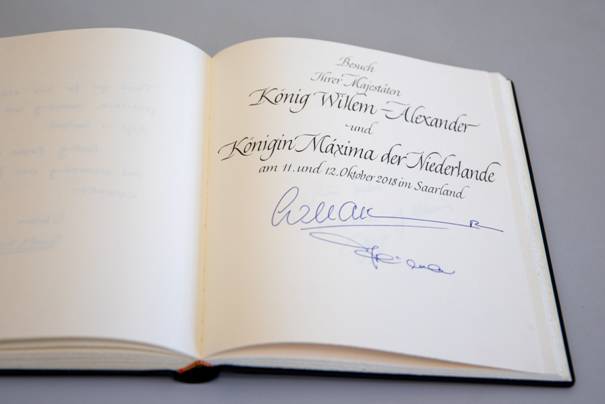 Besuch
Ihrer Majestäten
König Willem-Alexander
und
Königin Máxima der Niederlande
am 11. und 12. Oktober 2018 im Saarland